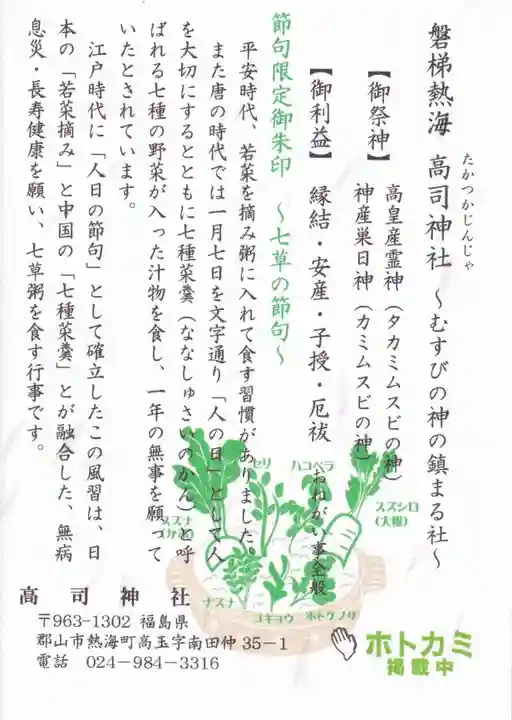 磐梯熱海 高司神社 ～むすびの神の鎮まる社～
たかつかじんじゃ
【御祭神】 高皇産霊神(タカミムスビの神)
神産巣日神(カミムスビの神)
【御利益】 縁結・安産・子授・厄祓
おねがい事全般
節句限定御朱印 ～七草の節句～
平安時代、若菜を摘み粥に入れて食す習慣がありました。
また唐の時代では一月七日を文字通り「人の日」として人
を大切にするとともに七種菜羹(ななしゅさいのかん)と呼
ばれる七種の野菜が入った汁物を食し、一年の無事を願って
いたとされています。
江戸時代に「人日の節句」として確立したこの風習は、日
本の「若菜摘み」と中国の「七種菜羹」とが融合した、無病
息災・長寿健康を願い、七草粥を食す行事です。
セリ
ハコベラ
スズシロ
(大根)
スズナ
(かぶ)
ナズナ
ゴギョウ
ホトケノザ
高司神社
〒963-1302 福島県
郡山市熱海町高玉字南田仲35－1
電話 024-984-3316
ホトカミ
掲載中